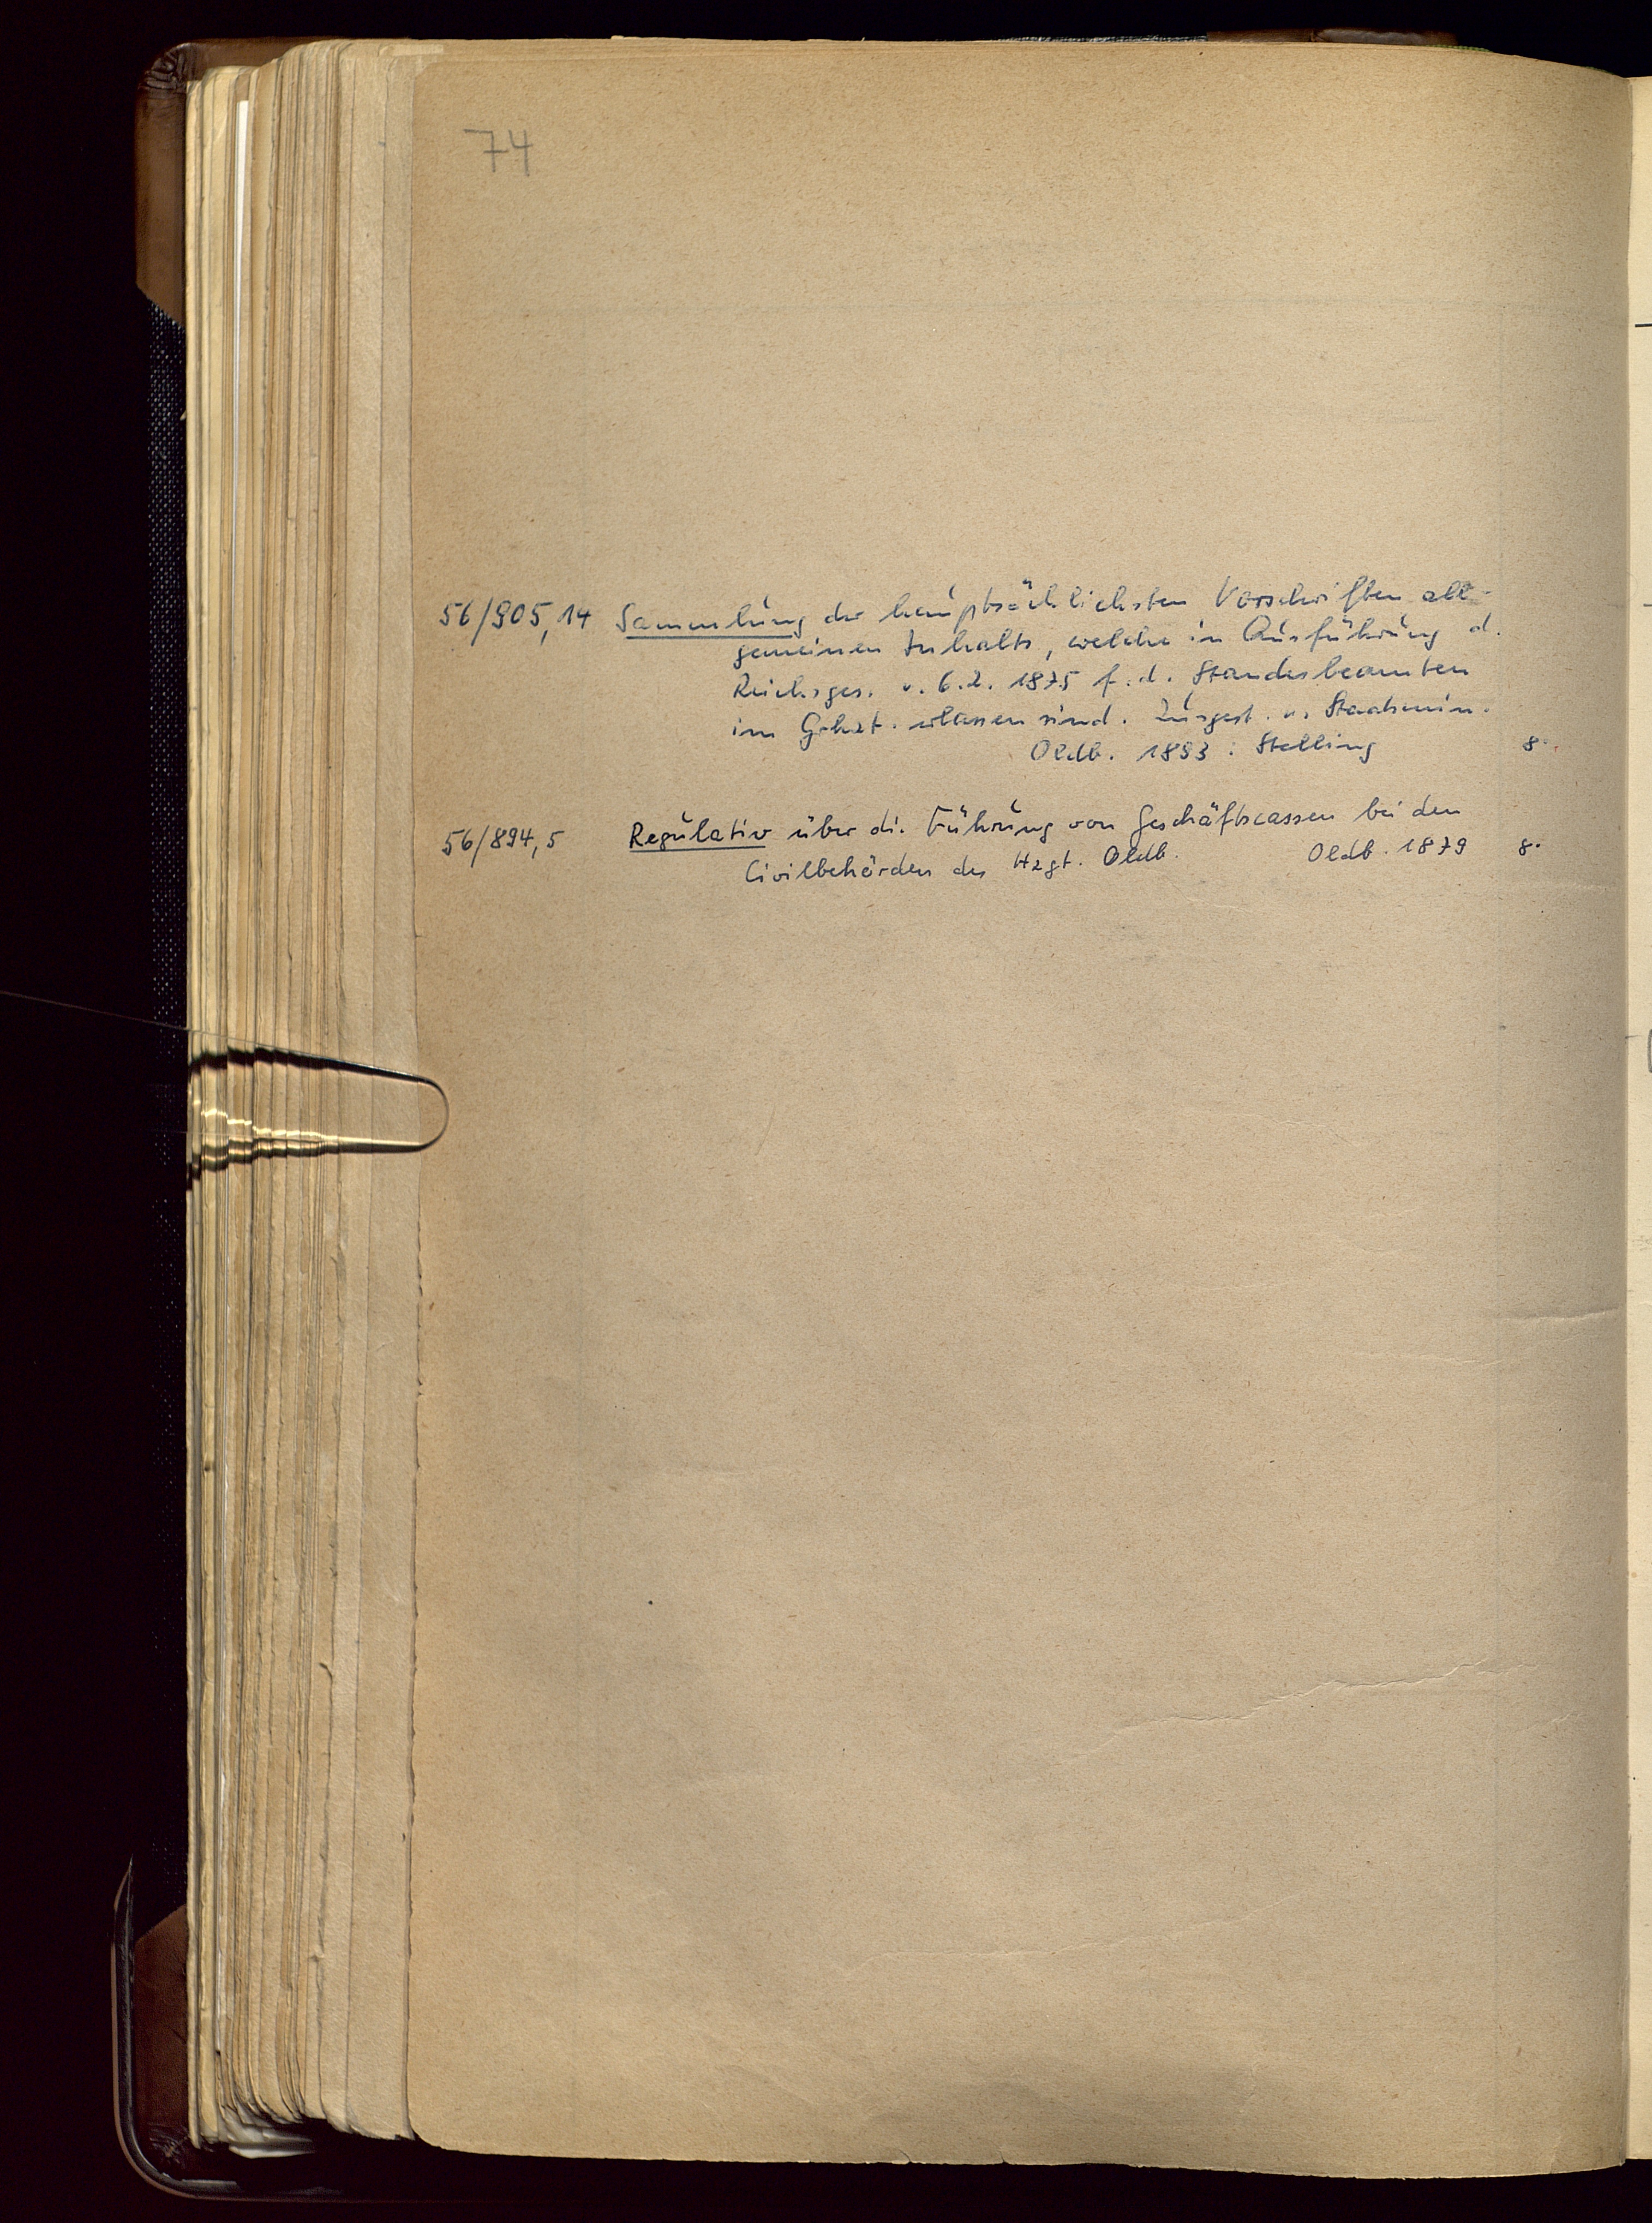 74
56/905,14 Sammlung der hauptsächlichsten Vorschriften all-
gemeinen Inhalts, welche in Ausführung d.
Reichsges. v. 6.2. 1875 f. d. Standesbeamten
im Grhzt. erlassen sind. Zusgest. v. Staatsmin.
Oldb. 1893: Stalling 8°.
56/894,5 Regulativ über die Führung von Geschäftscassen bei den
Civilbehörden des Hzgt. Oldb. Oldb. 1879 8°